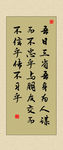 每日三省吾身为人谋
而不忠乎与朋友交而
不信乎传不习乎